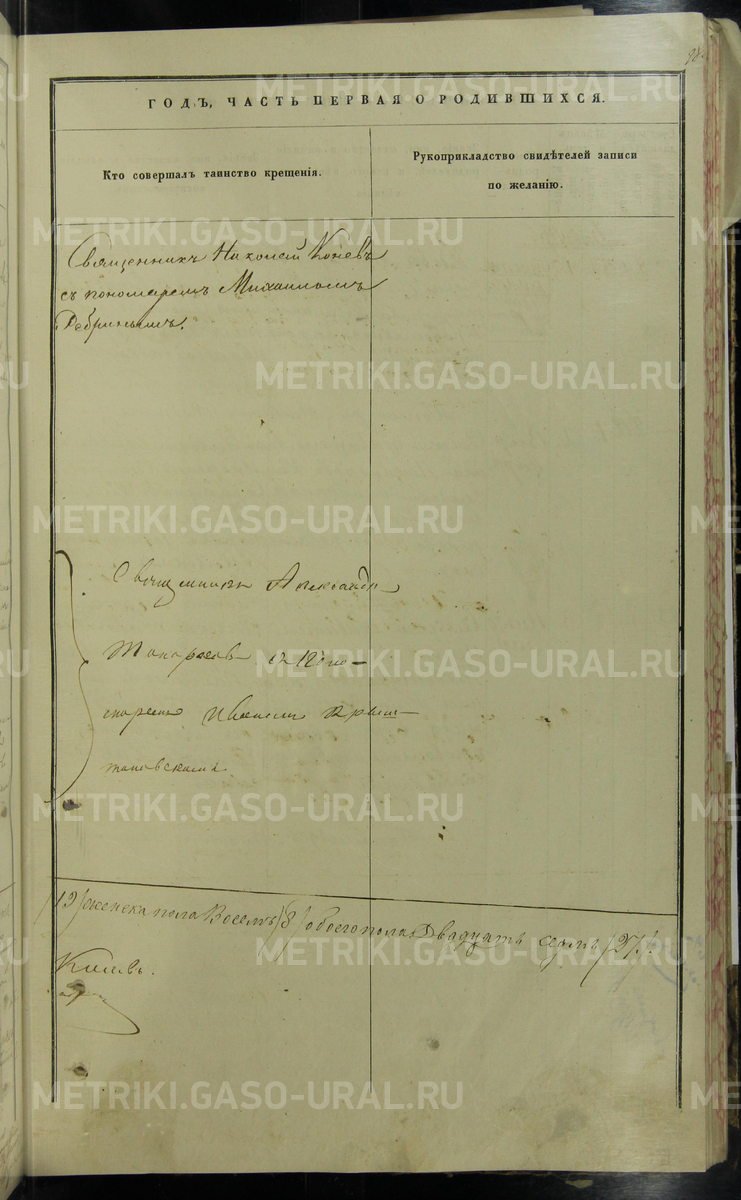 98.
ГОДЪ, ЧАСТЬ ПЕРВАЯ О РОДИВШИХСЯ.
Кто совершалъ таинство крещенія.
Рукоприкладство свидѣтелей записи
по желанію.
Священникъ Николай Коневъ
съ пономаремъ Михаиломъ
Ребринымъ.
Священникъ Александръ
съ Поно-
маремъ Иваномъ Крыш-
тановскимъ
19/ женска пола Восемь /8/ обоего пола Двадцать семь /27/.
METRIKI.GASO-URAL.RU